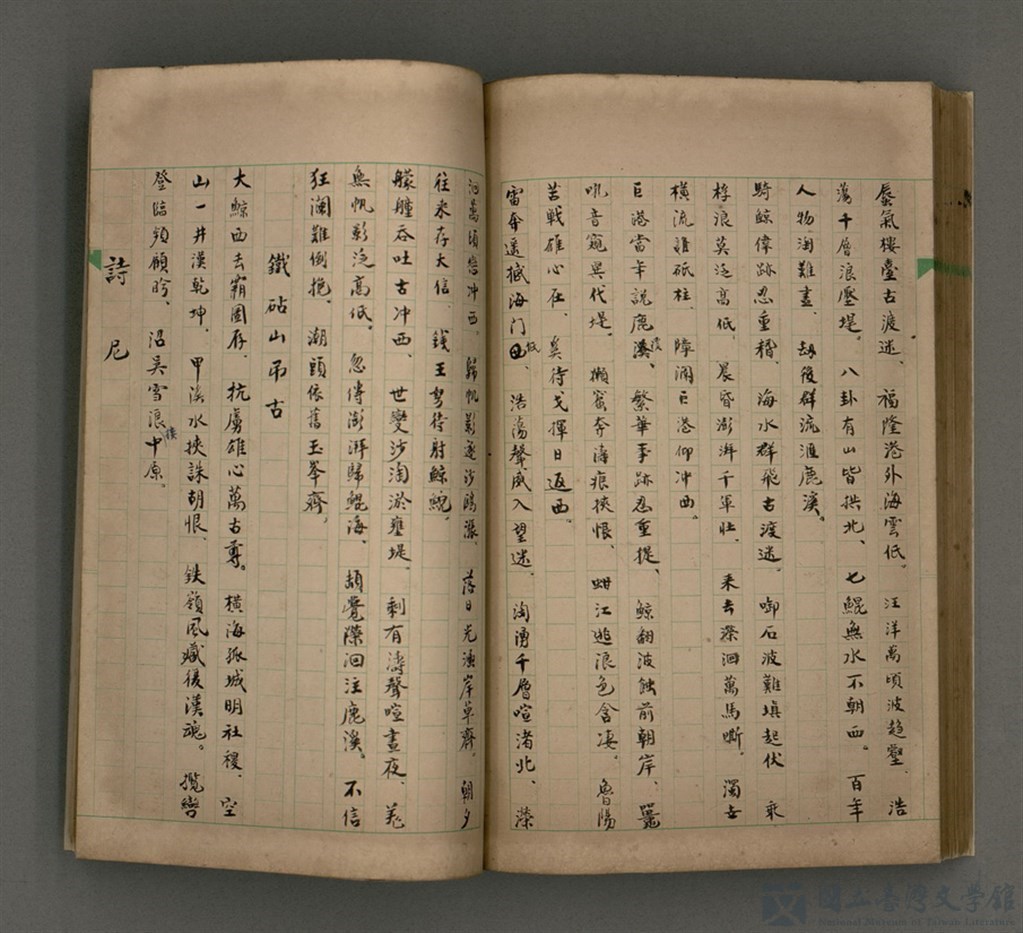 蜃氣樓臺古渡迷、福隆港外海雲低。汪洋萬頃波趨壑、浩
蕩千層浪壓堤。八卦有山皆拱北、七鯤無水不朝西。百年
人物淘難盡、劫後群流滙鹿溪。
騎鯨偉跡忍重稽、海水群飛古渡迷。啣石波難填起伏、乘
桴浪莫泛高低、晨昏澎湃千軍壯、來去瀠洄萬馬嘶。濁世
橫流誰砥柱、障瀾巨港仰冲西。
巨港當年說鹿溪、繁華事跡忍重提、鯨翻波蝕前朝岸、鼉
吼音寃異代堤。獺窟奔濤痕挾恨、蚶江遊浪色含凄。魯陽
苦戰雄心在、奚待戈揮日返西。
雷奔遙撼海门西、浩蕩聲威入望迷、淘湧千層喧渚北、瀠
洄萬頃戀冲西。歸帆影逐沙鷗漾、落日光浮岸草齊。朝夕
往來存大信、錢王弩待射鯨鯢。
艨艟吞吐古冲西、世變沙淘淤壅堤。剩有濤聲喧晝夜、羌
無帆影泛高低。忽傳澎湃歸鯤海、頡覺瀠洄注鹿溪。不信
狂瀾難倒挽、潮頭依舊玉峯齊。
鐵砧山弔古
大鯨西去霸圖存、抗虜雄心萬古尊。橫海孤城明社稷、空
山一井漢乾坤。甲溪水挾誅胡恨、鉄嶺風藏後漢魂。攬轡
登臨頻顧盼、沼吳雪浪中原。
詩尼
國立臺灣文學館
National Museum of Taiwan Literature